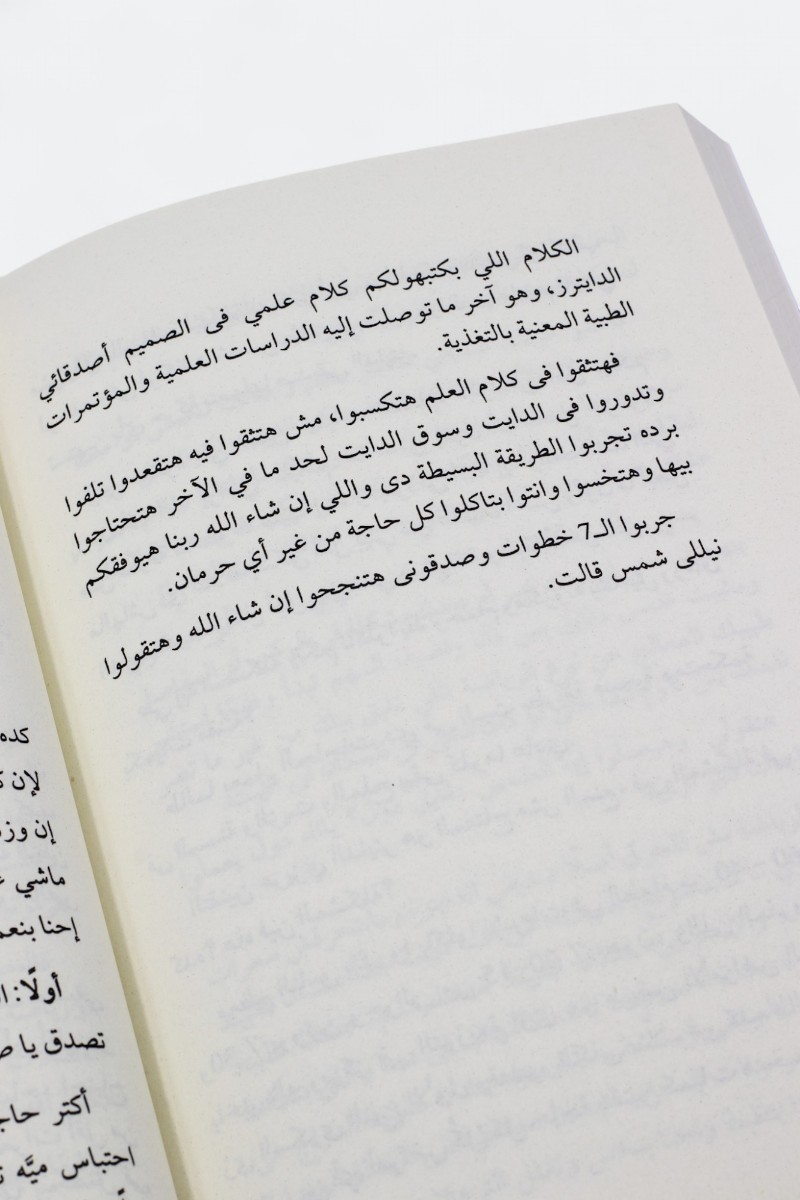 الكلام اللي بكتبهولكم كلام علمي فى الصميم أصدقائي
الدايترز، وهو آخر ما توصلت إليه الدراسات العلمية والمؤتمرات
الطبية المعنية بالتغذية.
فهتثقوا فى كلام العلم هتكسبوا، مش هتثقوا فيه هتقعدوا تلفوا
وتدوروا فى الدايت وسوق الدايت لحد ما في الآخر هتحتاجوا
برده تجربوا الطريقة البسيطة دى واللي إن شاء الله ربنا هيوفقكم
بيها وهتخسوا وانتوا بتاكلوا كل حاجة من غير أي حرمان.
جربوا الـ7 خطوات وصدقونى هتنجحوا إن شاء الله وهتقولوا
نيللى شمس قالت.
كده
لإن
إن
ماشي
إحنا بنعم
أولًا:
تصدق يا
أكتر حاج
احتباس ميَّه